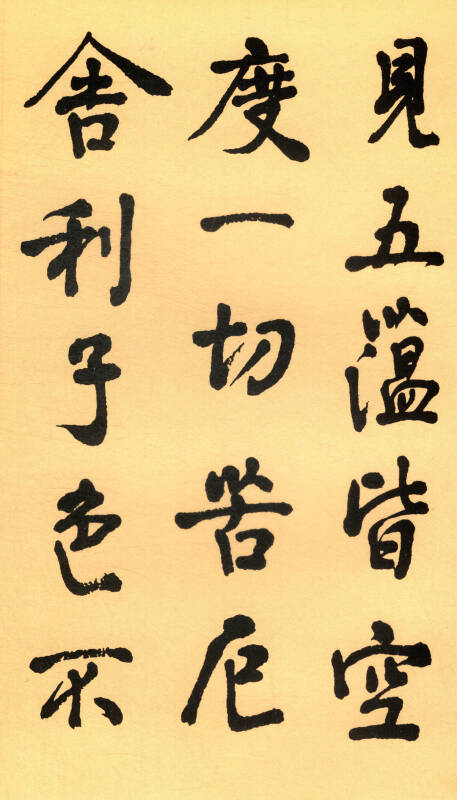 見五蕰皆空
度一切苦厄
舍利子色不